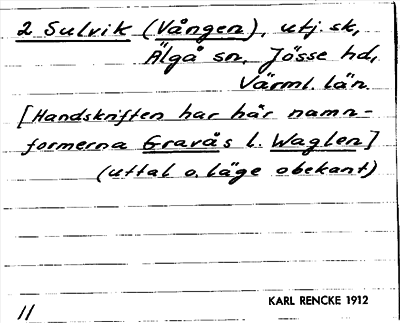 2 Sulvik (Vången), utj. sk,
Älgå sn, Jösse hd,
Värml. län.
[Handskriften har här namn-
formerna Gravås l. Waglen]
(uttal o. läge obekant)
KARL RENCKE 1912
11